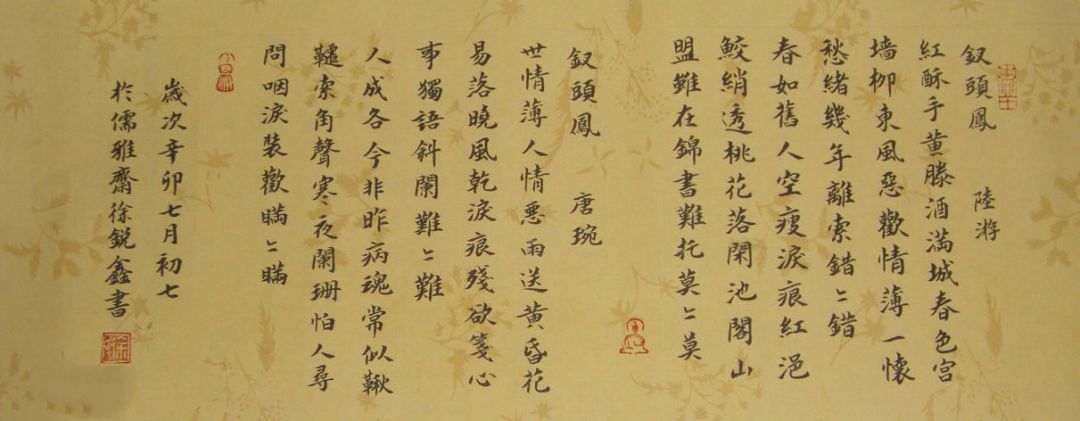 釵頭鳳 陸游
紅酥手黄滕酒滿城春色宮
墙柳東風惡歡情薄一懷
愁緒幾年離索錯〻錯
春如舊人空瘦淚痕紅浥
鮫綃透桃花落閑池閣山
盟雖在錦書難托莫〻莫
釵頭鳳 唐琬
世情薄人情悪雨送黄昏花
易落曉風乾淚痕殘欲箋心
事獨語斜闌難〻難
人成各今非昨病魂常似鞦
韆索角聲寒夜闌珊怕人尋
問咽淚装歡瞞〻瞞
歲次辛卯七月初七
於儒雅齋徐銳鑫書